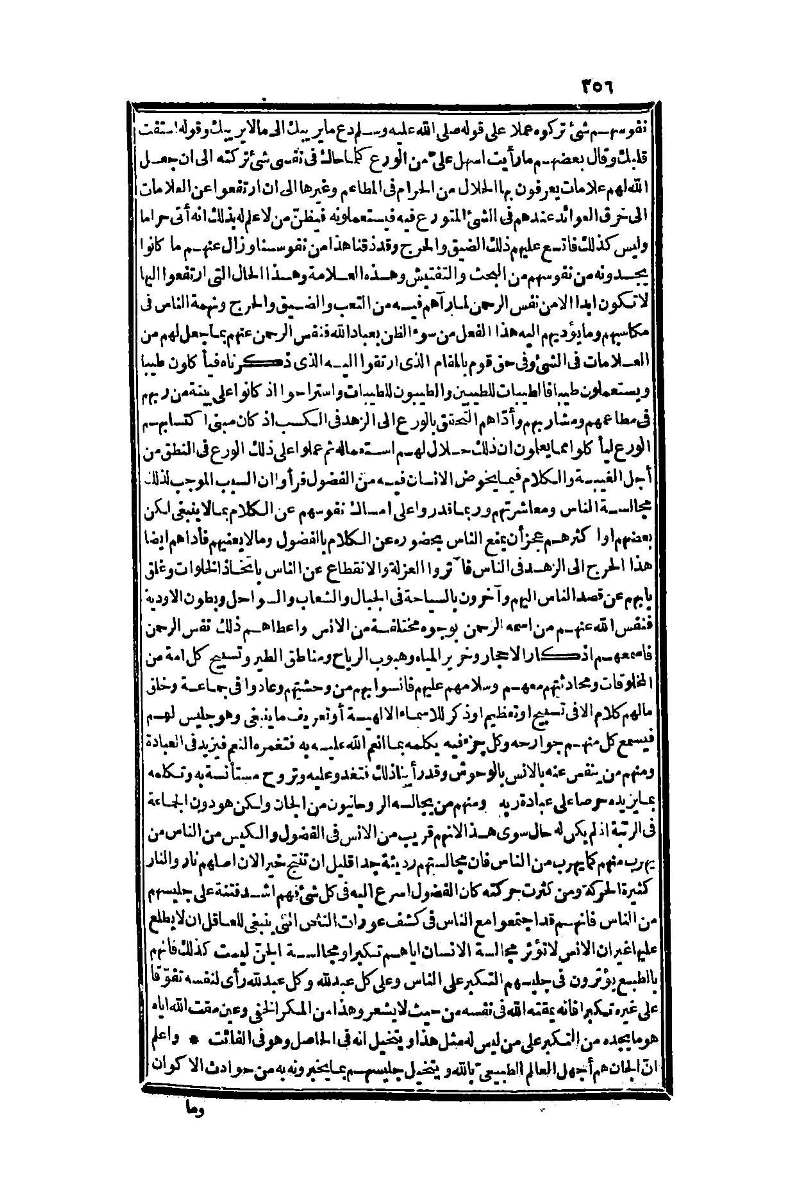 ٣٥٦
نفوسهم شئ تركوه عملا على قوله صلى الله عليه وسلم دع ما يريبك الى مالا يريبك وقوله استفت
قلبك وقال بعضهم ما رأيت اسهل علىّ من الورع كلما حاك فى نفسى شئ تركته الى ان جعل
الله لهم علامات يعرفون بها الحلال من الحرام فى المطاعم وغيرها الى ان ارتفعوا عن العلامات
الى خرق العوائد عندهم فى الشئ المتورع فيه فيستعملونه فيظنّ من لا علم له بذلك انه أتى حراما
وليس كذلك فاتسع عليهم ذلك الضيق والحرج وقد ذقنا هذا من نفوسنا وزال عنهم ما كانوا
يجدونه من نفوسهم من البحث والتفتيش وهذه العلامة وهذا الحال التى ارتفعوا اليها
لا تكون ابدا الا من نفس الرحمن لما رآهم فيه من التعب والضيق والحرج وتهمة الناس فى
مكاسبهم وما يؤديهم اليه هذا الفعل من سوء الظن بعباد الله فنفس الرحمن عنهم بما جعل لهم من
العلامات فى الشئ وفى حق قوم بالمقام الذى ارتقوا اليه الذى ذكرناه فيأكلون طيبا
ويستعملون طيبا فالطيبات للطيبين والطيبون للطيبات واستراحوا اذ كانوا على بينة من ربهم
فى مطاعمهم ومشاربهم وأدّاهم التحقق بالورع الى الزهد فى الكسب اذ كان مبنى اكتسابهم
الورع ليأكلوا مما يعلمون ان ذلك حلال لهم استعماله ثم عملوا على ذلك الورع فى النطق من
أجل الغيبة والكلام فيما يخوض الانسان فيه من الفضول فرأوا ان السبب الموجب لذلك
مجالسة الناس ومعاشرتهم وربما قدروا على امساك نفوسهم عن الكلام بما لا ينبغى لكن
بعضهم او اكثرهم عجز أن يمنع الناس بحضوره عن الكلام بالفضول وما لا يعنيهم فأداهم ايضا
هذا الحرج الى الزهد فى الناس فآثروا العزلة والانقطاع عن الناس باتخاذ الخلوات وغلق
بابهم عن قصد الناس اليهم وآخرون بالسياحة فى الجبال والشعاب والسواحل وبطون الاودية
فنفس الله عنهم من اسمه الرحمن بوجوه مختلفة من الانس واعطاهم ذلك نفس الرحمن
فاسمعهم اذكار الاحجار وخرير المياه وهبوب الرياح ومناطق الطير وتسبيح كل امة من
المخلوقات ومحادثتهم معهم وسلامهم عليهم فانسوا بهم من وحشتهم وعادوا فى جماعة وخلق
مالهم كلام الا فى تسبيح او تعظيم او ذكر للاسماء الالهية أو تعريف ما ينبغى وهو جليس لهم
فيسمع كل منهم جوارحه وكل جزء فيه يكلمه بما انعم الله عليه به فتغمره النعم فيزيد فى العبادة
ومنهم من ينفس عنه بالانس بالوحوش وقد رأينا ذلك فتغدو عليه وتروح مستأنسة به وتكلمه
بما يزيده حرصا على عبادة ربه ومنهم من يجالسه الروحانيون من الجان ولكن هو دون الجماعة
فى الرتبة اذ لم يكن له حال سوى هذا لانهم قريب من الانس فى الفضول والكيس من الناس من
يهرب منهم كما يهرب من الناس فان مجالستهم رديئة جدا قليل ان تنتج خيرا لان اصلهم نار والنار
كثيرة الحركة ومن كثرت حركته كان الفضول اسرع اليه فى كل شئ فهم اشد فتنة على جليسهم
من الناس فانهم قد اجتمعوا مع الناس فى كشف عورات الناس التى ينبغى للعاقل ان لا يطلع
عليها غير ان الانس لا تؤثر مجالسة الانسان اياهم تكبرا ومجالسة الجنّ ليست كذلك فانهم
بالطبع يؤثرون فى جليسهم التكبر على الناس وعلى كل عبد لله وكل عبد لله رأى لنفسه تفوّقا
على غيره تكبرا فانه يمقته الله فى نفسه من حيث لا يشعر وهذا من المكر الخفى وعين مقت الله اياه
هو ما يجده من التكبر على من ليس له مثل هذا ويتخيل انه فى الحاصل وهو فى الفائت * واعلم
انّ الجان هم أجهل العالم الطبيعىّ بالله ويتخيل جليسهم بما يخبرونه به من حوادث الاكوان
وما